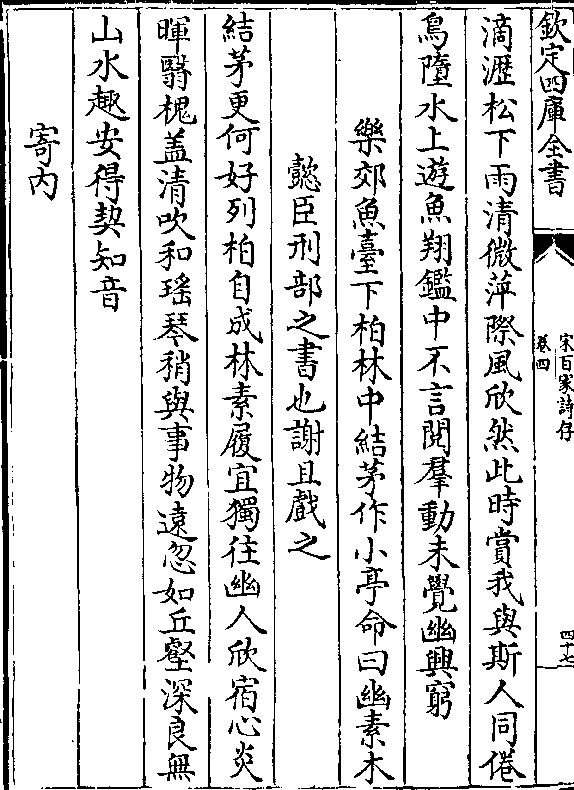 欽定四庫全書
宋百家詩存
卷四
四十七
滴瀝松下雨清微萍際風欣然此時賞我與斯人同倦
鳥墮水上遊魚翔鑑中不言閱羣動未覺幽興窮
樂郊魚臺下柏林中結茅作小亭命曰幽素木
懿臣刑部之書也謝且戲之
結茅更何好列柏自成林素履宜獨往幽人欣宿心炎
暉翳槐盖清吹和瑤琴稍與事物遠忽如丘壑深良無
山水趣安得契知音
寄内